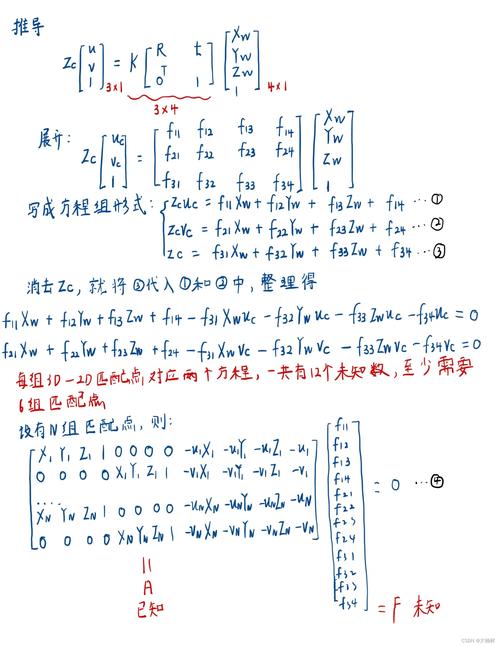 推导
Zc [u v 1] = K [R t 0^T 1] [Xw Yw Zw 1]
3×1 3×4 4×1
展开: Zc [uc vc 1] = [f11 f12 f13 f14 f21 f22 f23 f24 f31 f32 f33 f34] [Xw Yw Zw 1]
写成方程组形式: { Zcuc = f11Xw + f12Yw + f13Zw + f14 … ①
ZcVc = f21Xw + f22Yw + f23Zw + f24 … ②
Zc = f31Xw + f32Yw + f33Zw + f34 … ③
消去Zc, 就将③代入①和②中, 整理得
f11Xw + f12Yw + f13Zw + f14 - f31Xwuc - f32Ywuc - f33Zwuc - f34uc = 0
f21Xw + f22Yw + f23Zw + f24 - f31XwVc - f32YwVc - f33ZwVc - f34Vc = 0
每组3D-2D匹配点对应两个方程, 一共有12个未知数, 至少需要
6组匹配点
设有N组匹配点, 则:
X1 Y1 Z1 1 0 0 0 0 -u1X1 -u1Y1 -u1Z1 -u1
0 0 0 0 X1 Y1 Z1 1 -v1X1 -v1Y1 -v1Z1 -v1
....
XN YN ZN 1 0 0 0 0 -uNXN -uNYN -uNZN -uN
0 0 0 0 XN YN ZN 1 -vNXN -vNYN -vNZN -vN
f11
f12
f13
f14
f21
f22
f23
f24
f31
f32
f33
f34
= 0 … ④
||
A
已知
= F 未知